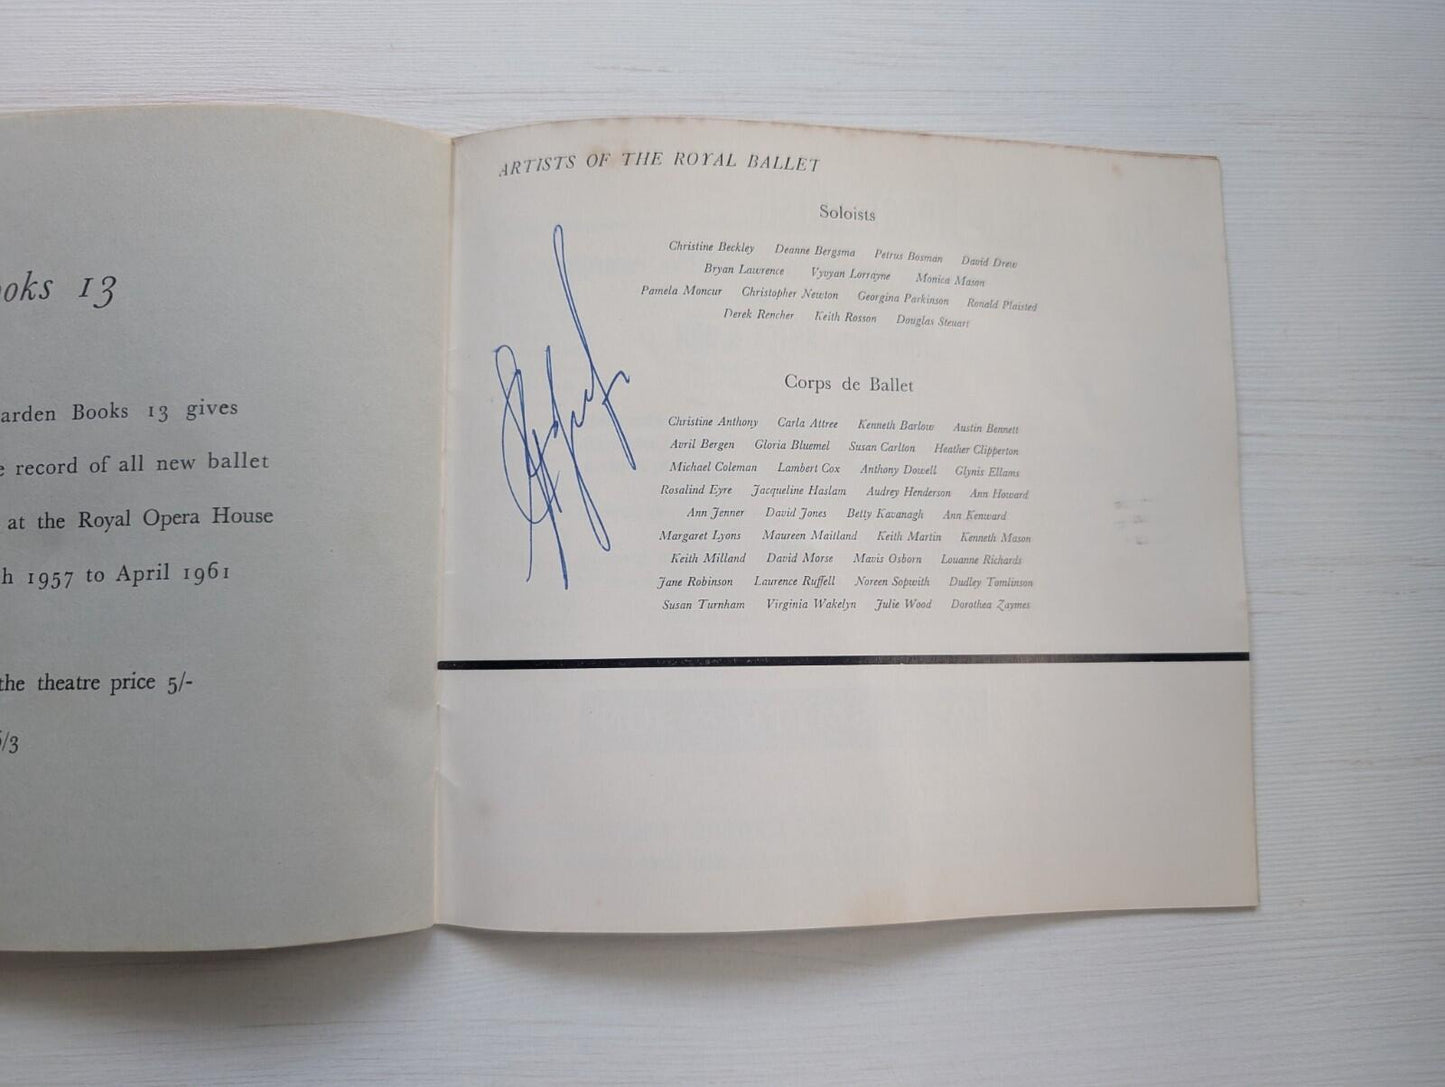 ooks 13
arden Books 13 gives
e record of all new ballet
at the Royal Opera House
h 1957 to April 1961
the theatre price 5/-
/3
ARTISTS OF THE ROYAL BALLET
Soloists
Christine Beckley Deanne Bergsma Petrus Bosman David Drew
Bryan Lawrence Vyvyan Lorrayne Monica Mason
Pamela Moncur Christopher Newton Georgina Parkinson Ronald Plaisted
Derek Rencher Keith Rosson Douglas Steuart
Corps de Ballet
Christine Anthony Carla Attree Kenneth Barlow Austin Bennett
Avril Bergen Gloria Bluemel Susan Carlton Heather Clipperton
Michael Coleman Lambert Cox Anthony Dowell Glynis Ellams
Rosalind Eyre Jacqueline Haslam Audrey Henderson Ann Howard
Ann Jenner David Jones Betty Kavanagh Ann Kenward
Margaret Lyons Maureen Maitland Keith Martin Kenneth Mason
Keith Milland David Morse Mavis Osborn Louanne Richards
Jane Robinson Laurence Ruffell Noreen Sopwith Dudley Tomlinson
Susan Turnham Virginia Wakelyn Julie Wood Dorothea Zaymes